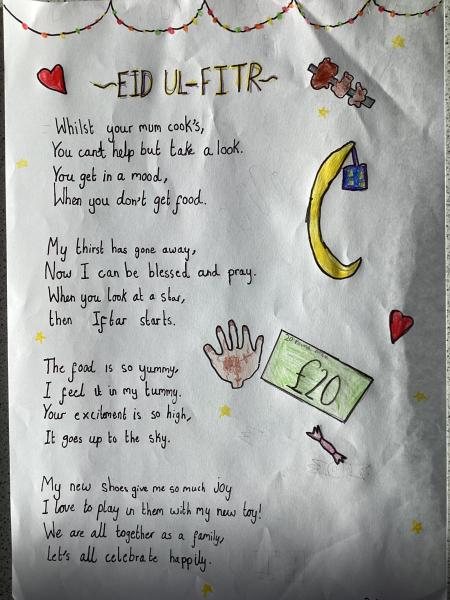 ~EID UL-FITR~
Whilst your mum cook's,
You can't help but take a look.
You get in a mood,
When you don't get food.
My thirst has gone away,
Now I can be blessed and pray.
When you look at a star,
then Iftar starts.
The food is so yummy,
I feel it in my tummy.
Your excitement is so high,
It goes up to the sky.
£20
My new shoes give me so much joy
I love to play in them with my new toy!
We are all together as a family,
Let's all celebrate happily.